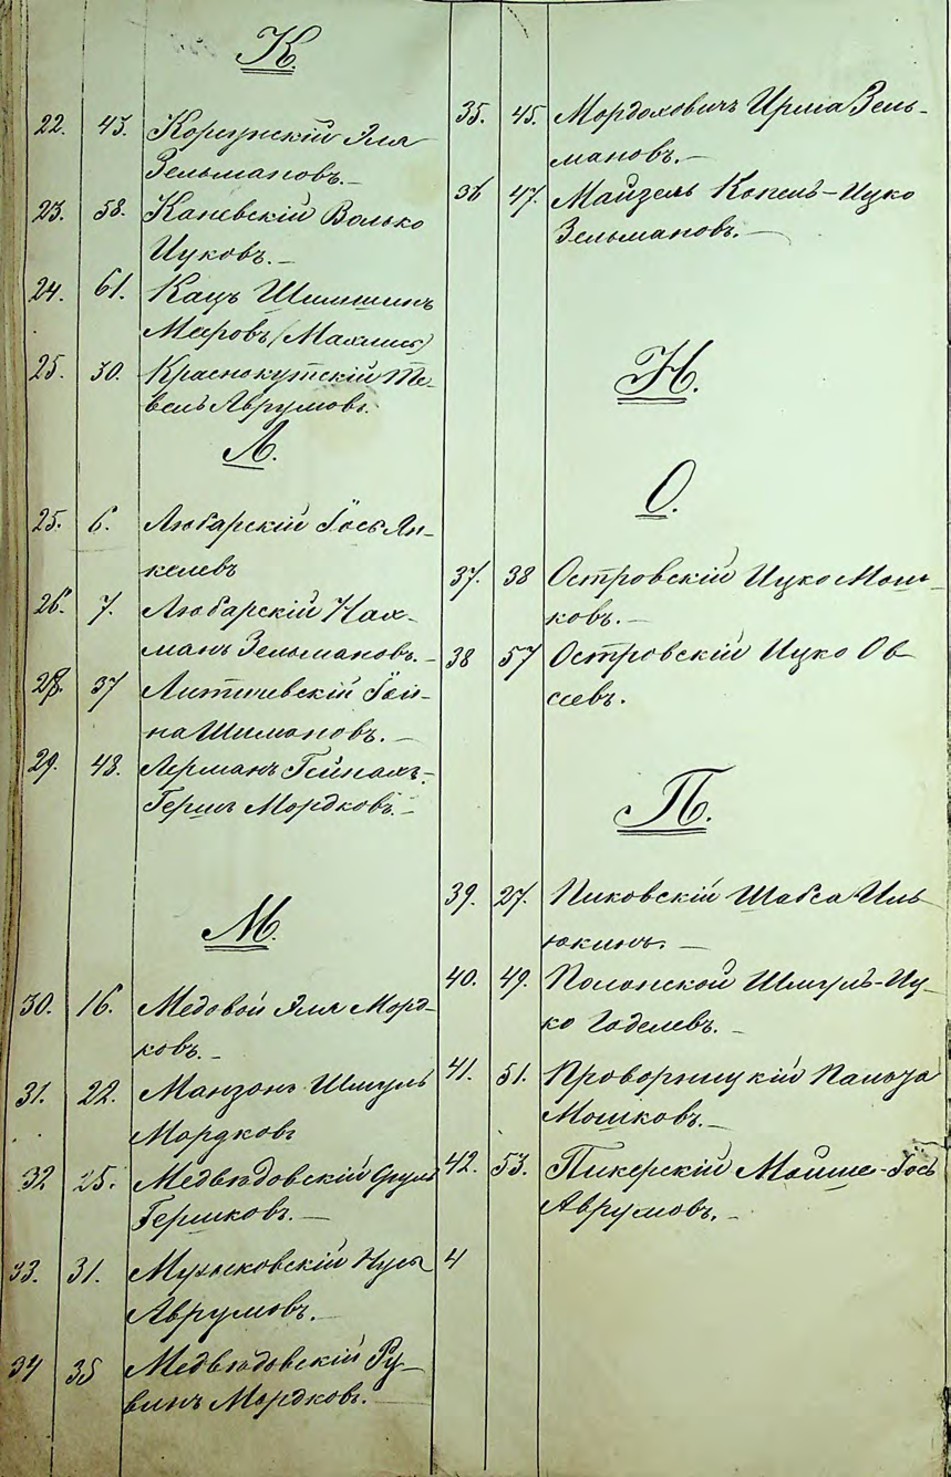 К.
22. 43. Корсунскій Эля
Зельмановъ.
23. 58. Каневскій Волько
Ицковъ.
24. 61. Кацъ Шимшинъ
Мееровъ
25. 30. Краснокутскій Те-
вель Аврумовъ.
Л.
25. 6. Любарскій Іось Ян-
келевъ
26. 7. Любарскій Нах-
манъ Зельмановъ.
28. 37 Литичевскій Гой-
на Шимоновъ.
29. 48. Лерманъ Гейнахъ-
Гершъ Мордковъ.
М.
30. 16. Медовой Эля Морд-
ковъ.
31. 22. Манзонъ Шмуль
Мордковъ
32 25. Медвѣдовскій Сруль
Гершковъ.
33. 31. Нусъ
Аврумовъ.
34 35 Медвѣдовскій Ру-
винъ Мордковъ.
35. 45. Мордоховичъ Ирма Зель-
мановъ.
36 47. Майзель Копель-Ицко
Зельмановъ.
Н.
О.
37. 38 Островскій Ицко Мош-
ковъ.
38 57 Островскій Ицко Ов-
сеевъ.
П.
39. 27. Пиковскій Шабса Иль
юкинъ.
40. 49. Полонской Шмуль-Иц-
ко Годелевъ.
41. 51. Проворницкій
Мошковъ.
42. 53. Пикерскій Мойше-Іось
Аврумовъ.
4